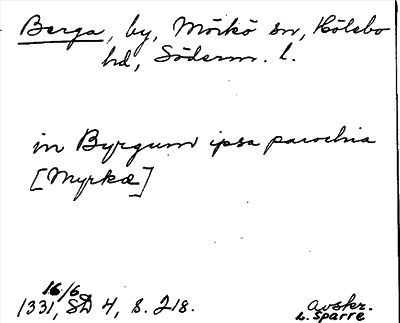 Berga, by, Mörkö sn, Hölebo
hd, Söderm. l.
in Byrgum ipsa parochia
[Myrkæ]
16/6
1331, SD 4, s. 218.
Avskr.
L. Sparre